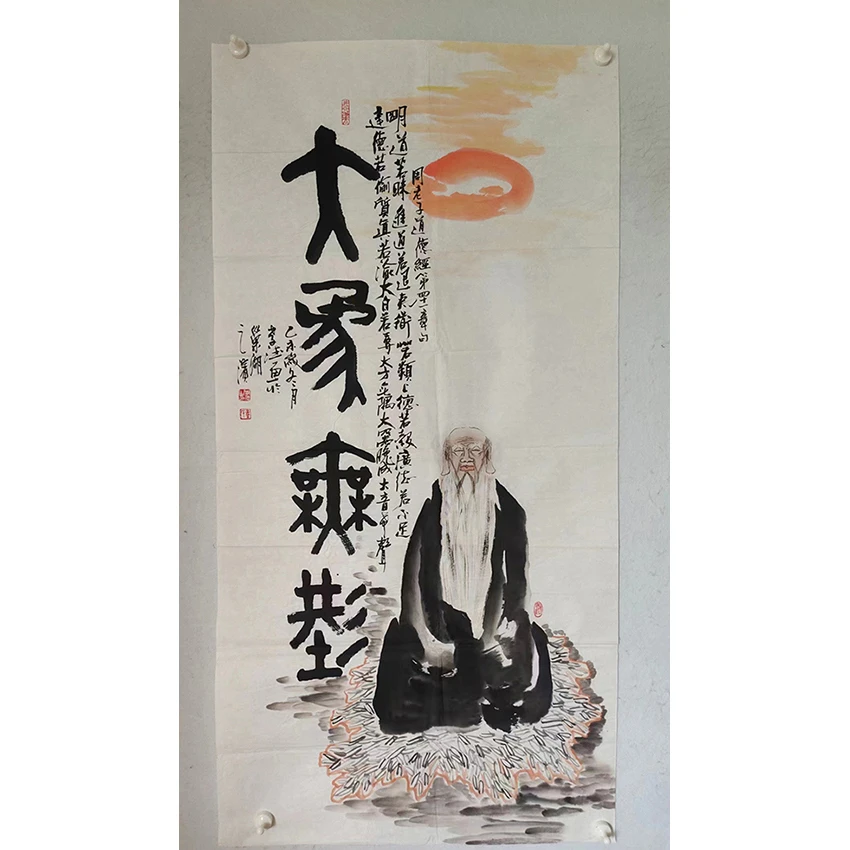 大象無形
明道若昧進道若退夷道若類上德若穀廣德若不足
建德若偷質真若渝大白若辱大方無隅大器晚成大音希聲
老子道德經第四一章句
歲冬月
画於
巢湖
之濱